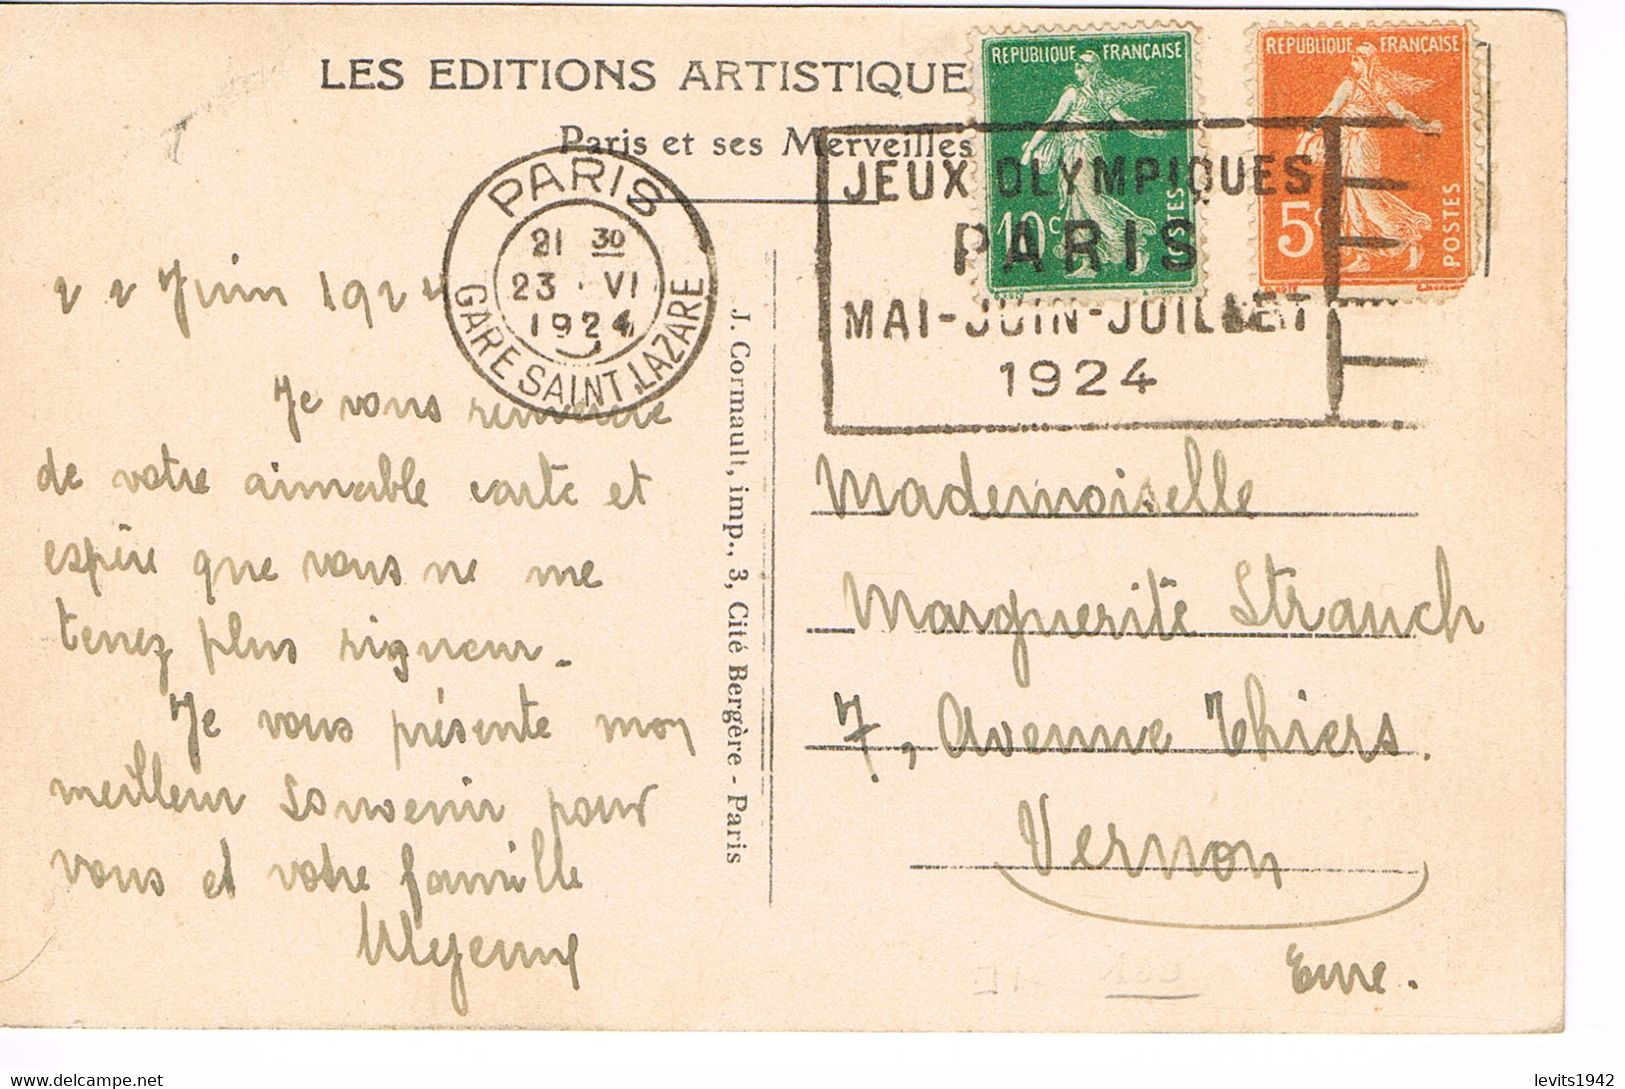 LES EDITIONS ARTISTIQUE
Paris et ses Merveilles
REPUBLIQUE FRANÇAISE
10c
POSTES
REPUBLIQUE FRANÇAISE
5c
POSTES
PARIS
21 30
23 · VI
1924
GARE SAINT LAZARE
JEUX OLYMPIQUES
PARIS
MAI-JUIN-JUILLET
1924
22 Juin 1924
Je vous remercie
de votre aimable carte et
espère que vous ne me
tenez plus rigueur.
Je vous présente mon
meilleur souvenir pour
vous et votre famille
J. Cormault, imp., 3, Cité Bergère - Paris
Mademoiselle
Marguerite Strauch
7, Avenue Thiers.
Vernon
Eure.
levits1942